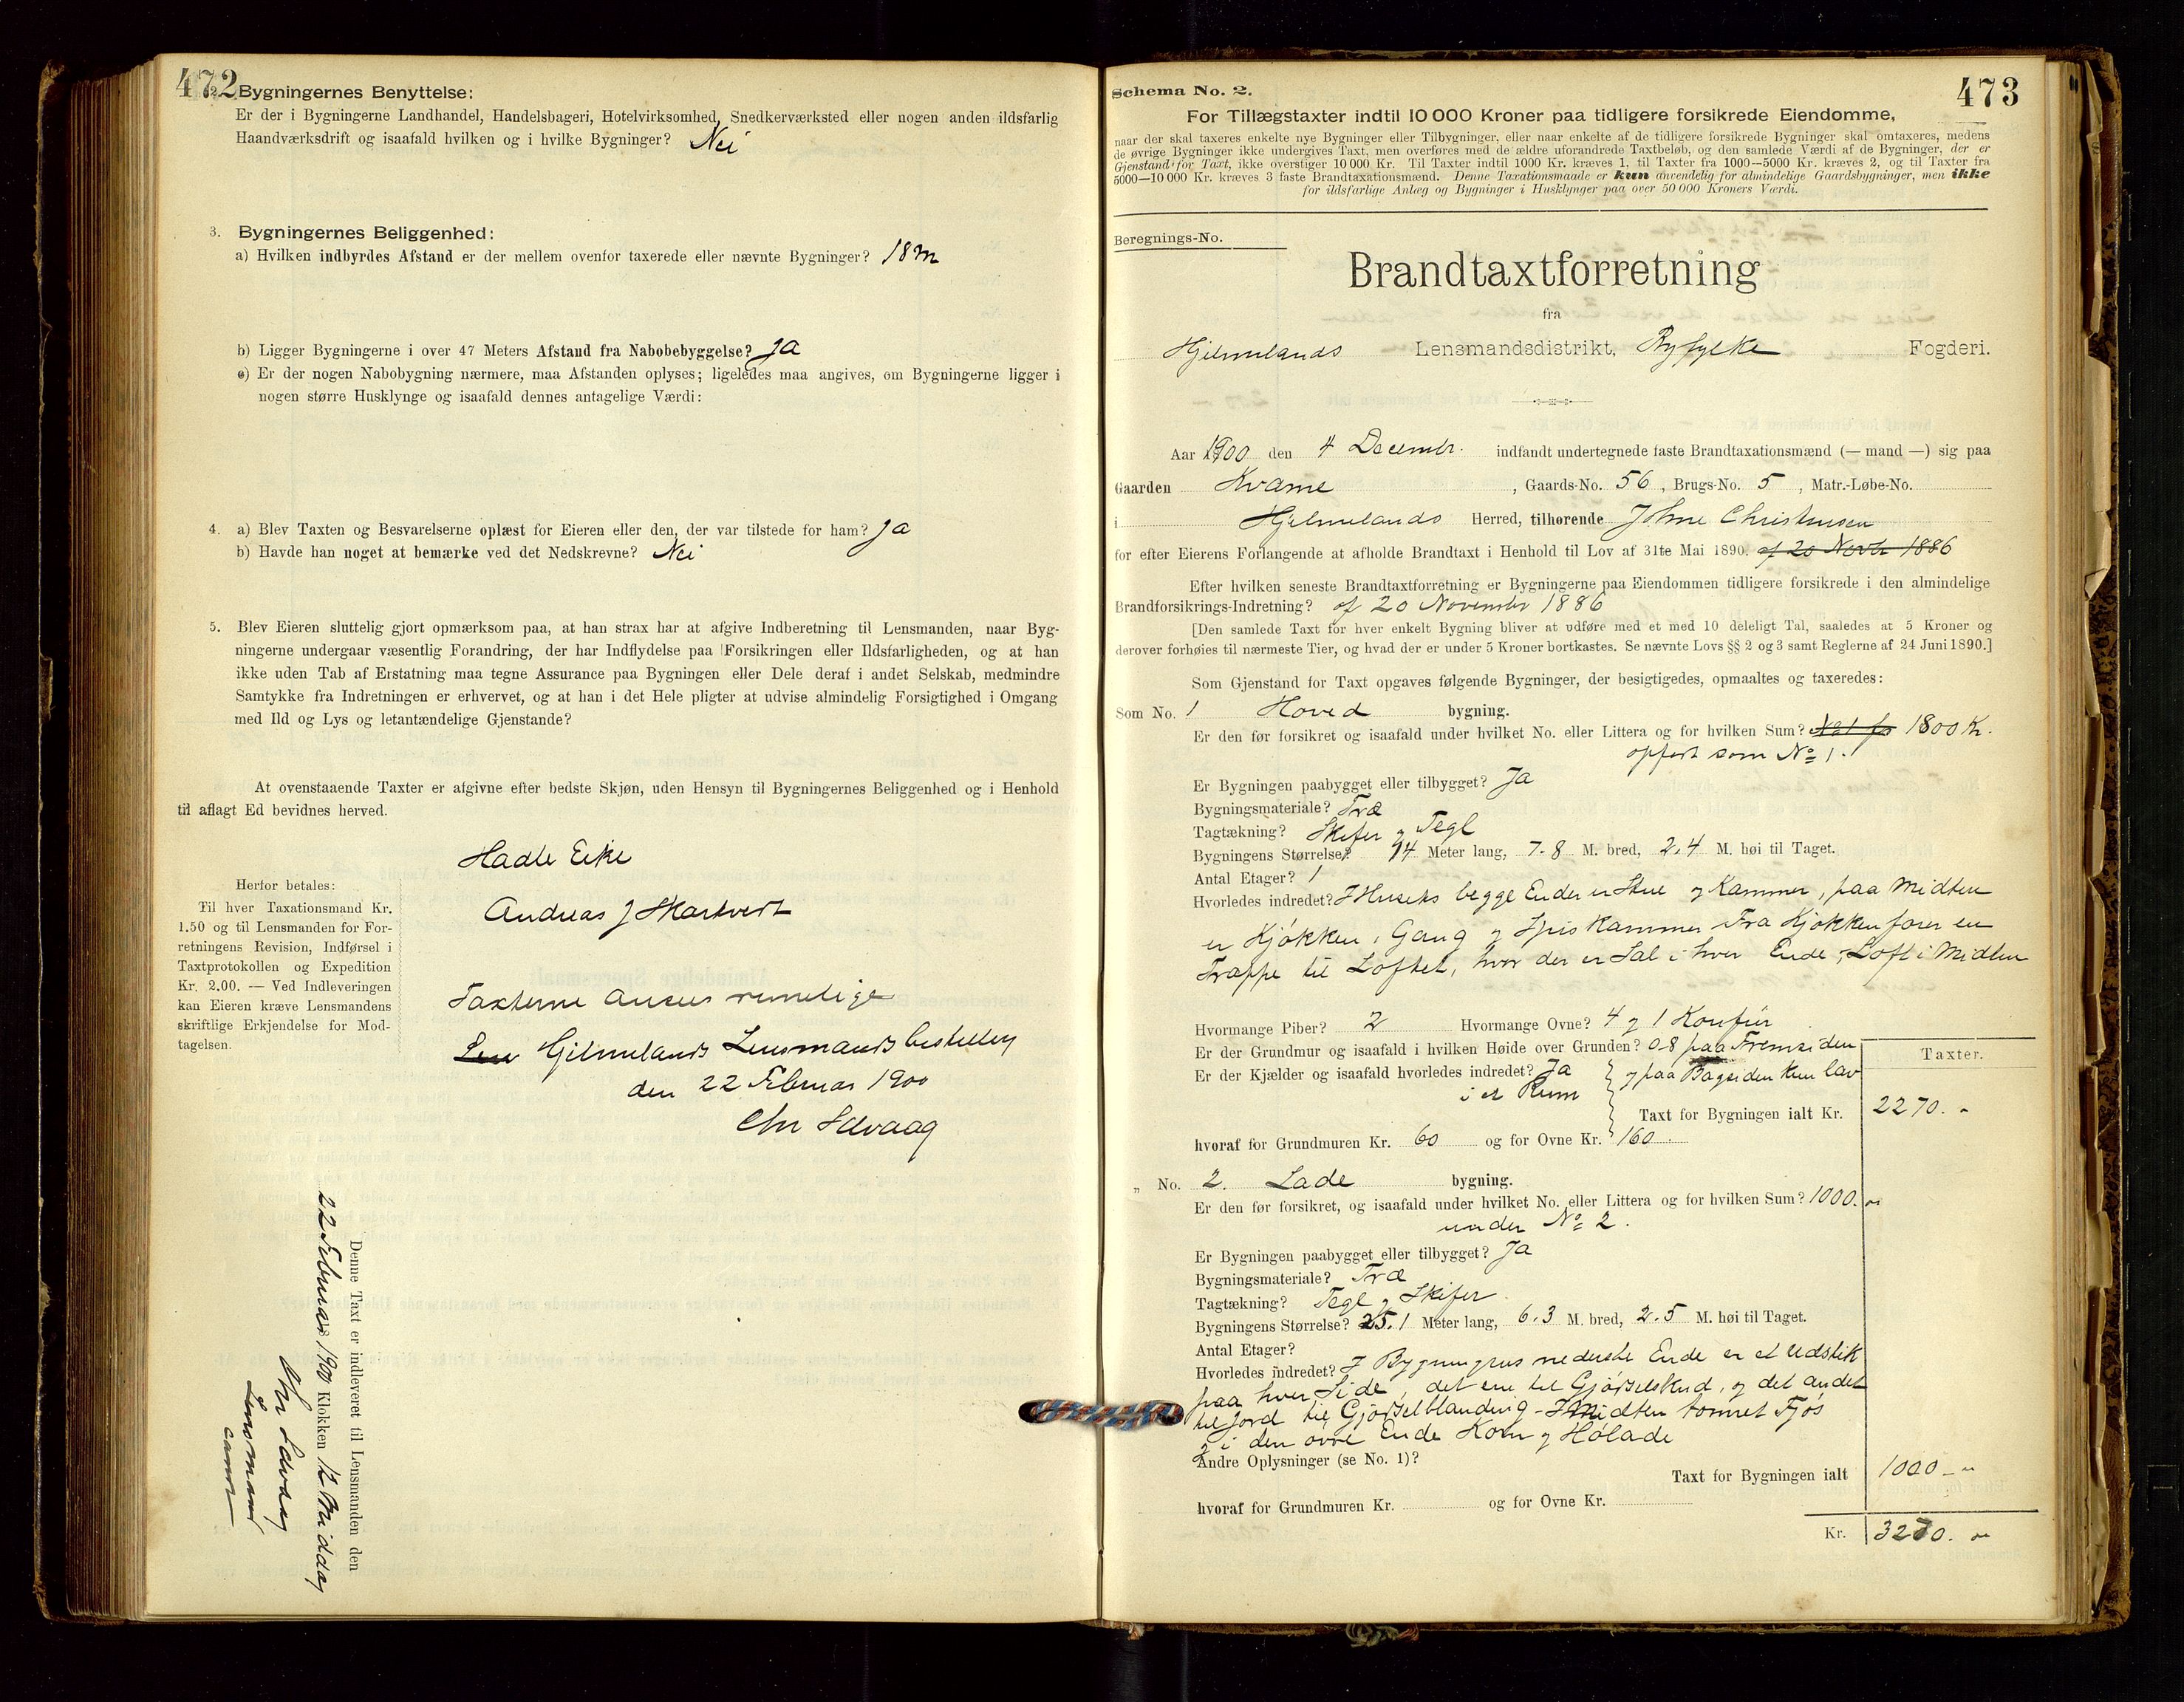 472
2. Bygningernes Benyttelse:
Er der i Bygningerne Landhandel, Handelsbageri, Hotelvirksomhed, Snedkerværksted eller nogen anden ildsfarlig
Haandværksdrift og isaafald hvilken og i hvilke Bygninger? Nei
3. Bygningernes Beliggenhed:
a) Hvilken indbyrdes Afstand er der mellem ovenfor taxerede eller nævnte Bygninger? 18 m
b) Ligger Bygningerne i over 47 Meters Afstand fra Nabobebyggelse? Ja
c) Er der nogen Nabobygning nærmere, maa Afstanden oplyses; ligeledes maa angives, om Bygningerne ligger i
nogen større Husklynge og isaafald dennes antagelige Værdi:
4. a) Blev Taxten og Besvarelserne oplæst for Eieren eller den, der var tilstede for ham? Ja
b) Havde han noget at bemærke ved det Nedskrevne? Nei
5. Blev Eieren sluttelig gjort opmærksom paa, at han strax har at afgive Indberetning til Lensmanden, naar Byg-
ningerne undergaar væsentlig Forandring, der har Indflydelse paa Forsikringen eller Ildsfarligheden, og at han
ikke uden Tab af Erstatning maa tegne Assurance paa Bygningen eller Dele deraf i andet Selskab, medmindre
Samtykke fra Indretningen er erhvervet, og at han i det Hele pligter at udvise almindelig Forsigtighed i Omgang
med Ild og Lys og letantændelige Gjenstande?
At ovenstaaende Taxter er afgivne efter bedste Skjøn, uden Hensyn til Bygningernes Beliggenhed og i Henhold
til aflagt Ed bevidnes herved.
Hadle Eike
Andreas J Skartveit
Herfor betales:
Til hver Taxationsmand Kr.
1.50 og til Lensmanden for For-
retningens Revision, Indførsel i
Taxtprotokollen og Expedition
Kr. 2.00. — Ved Indleveringen
kan Eieren kræve Lensmandens
skriftlige Erkjendelse for Mod-
tagelsen.
Taxterne ansees rimelige
Hjelmelands Lensmandsbestilling
den 22 Februar 1900
Chr Løvaag
Denne Taxt er indleveret til Lensmanden den
22 Februar 1900 Klokken 12 Middag
Chr Løvaag
Lensmand
473
Schema No. 2.
For Tillægstaxter indtil 10 000 Kroner paa tidligere forsikrede Eiendomme,
naar der skal taxeres enkelte nye Bygninger eller Tilbygninger, eller naar enkelte af de tidligere forsikrede Bygninger skal omtaxeres, medens
de øvrige Bygninger ikke undergives Taxt, men overføres med de ældre uforandrede Taxtbeløb, og den samlede Værdi af de Bygninger, der er
Gjenstand for Taxt, ikke overstiger 10 000 Kr. Til Taxter indtil 1000 Kr. kræves 1, til Taxter fra 1000—5000 Kr. kræves 2, og til Taxter fra
5000—10 000 Kr. kræves 3 faste Brandtaxationsmænd. Denne Taxationsmaade er kun anvendelig for almindelige Gaardsbygninger, men ikke
for ildsfarlige Anlæg og Bygninger i Husklynger paa over 50 000 Kroners Værdi.
Beregnings-No.
Brandtaxtforretning
fra
Hjelmelands Lensmandsdistrikt, Ryfylke Fogderi.
Aar 1900 den 4 Decembr. indfandt undertegnede faste Brandtaxationsmænd (— mand —) sig paa
Gaarden Kvame, Gaards-No. 56, Brugs-No. 5, Matr.-Løbe-No.
i Hjelmelands Herred, tilhørende Johne Christensen
for efter Eierens Forlangende at afholde Brandtaxt i Henhold til Lov af 31te Mai 1890. af 20 Novbr 1886
Efter hvilken seneste Brandtaxtforretning er Bygningerne paa Eiendommen tidligere forsikrede i den almindelige
Brandforsikrings-Indretning? af 20 November 1886
[Den samlede Taxt for hver enkelt Bygning bliver at udføre med et med 10 deleligt Tal, saaledes at 5 Kroner og
derover forhøies til nærmeste Tier, og hvad der er under 5 Kroner bortkastes. Se nævnte Lovs §§ 2 og 3 samt Reglerne af 24 Juni 1890.]
Som Gjenstand for Taxt opgaves følgende Bygninger, der besigtigedes, opmaaltes og taxeredes:
Som No. 1 Hoved bygning.
Er den før forsikret og isaafald under hvilket No. eller Littera og for hvilken Sum? No 1 for 1800 Kr.
opført som No 1.
Er Bygningen paabygget eller tilbygget? Ja
Bygningsmateriale? Træ
Tagtækning? Skifer og Tegl
Bygningens Størrelse? 14 Meter lang, 7.8 M. bred, 2.4 M. høi til Taget.
Antal Etager? 1
Hvorledes indredet? I Husets begge Ender er Stue og Kammer, paa Midten
er Kjøkken, Gang og Spiskammer. Fra Kjøkken fører en
Trappe til Loftet, hvor der er Sal i hver Ende, Loft i Midten
Hvormange Piber? 2 Hvormange Ovne? 4 og 1 Komfür
Er der Grundmur og isaafald i hvilken Høide over Grunden? 0.8 paa Fremsiden
Er der Kjælder og isaafald hvorledes indredet? Ja og paa Bagsiden kun lav
i et Rum
Taxter.
Taxt for Bygningen ialt Kr. 2270. -
hvoraf for Grundmuren Kr. 60 og for Ovne Kr. 160
„ No. 2. Lade bygning.
Er den før forsikret, og isaafald under hvilket No. eller Littera og for hvilken Sum? 1000.
under No 2.
Er Bygningen paabygget eller tilbygget? Ja
Bygningsmateriale? Træ
Tagtækning? Tegl og Skifer
Bygningens Størrelse? 25.1 Meter lang, 6.3 M. bred, 2.5 M. høi til Taget.
Antal Etager?
Hvorledes indredet? I Bygningens nederste Ende er et Udstik
paa hver Side, det ene til Gjødselskud, og det andet
til Jord til Gjødselblanding - I Midten tømret Fjøs
og i den øvre Ende Korn og Hølade
Andre Oplysninger (se No. 1)?
Taxt for Bygningen ialt 1000 -
hvoraf for Grundmuren Kr. og for Ovne Kr.
Kr. 3270.